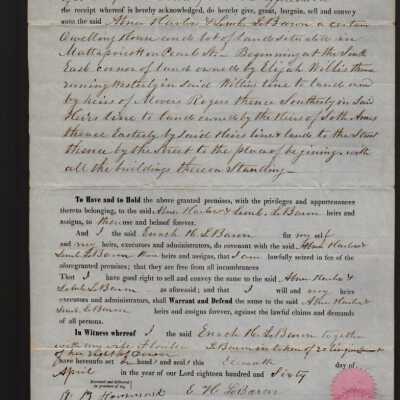 the receipt whereof is hereby acknowledged, do hereby give, grant, bargain, sell and convey
unto the said Abner Harlow & Lemb. LeBaron a certain
Dwelling House and lot of land situated in
Mattapoisett on Pearl St. Beginning at the South
East corner of land owned by Elijah Willis thence
running Westerly in said Willis line to land own
by heirs of Moses Rogers thence Southerly in said
Heirs line to land owned by the Heirs of Seth Ames
thence Easterly by said Heirs line & lands to the Street
thence by the Street to the place of begining with
all the buildings thereon Standing
To Have and to Hold the above granted premises, with the privileges and appurtenances
thereto belonging, to the said Abner Harlow & Lemb. LeBaron heirs and
assigns, to their use and behoof forever.
And I the said Enoch H. LeBaron for my self
and my heirs, executors and administrators, do covenant with the said Abner Harlow &
Lemb. LeBaron their heirs and assigns, that I am lawfully seized in fee of the
aforegranted premises; that they are free from all incumbrances
That I have good right to sell and convey the same to the said Abner Harlow &
LeBaron as aforesaid; and that I will and my heirs
executors and administrators, shall Warrant and Defend the same to the said Abner Harlow &
Lemb. LeBaron heirs and assigns forever, against the lawful claims and demands
of all persons.
In Witness whereof I the said Enoch H. LeBaron together
with my wife LeBaron in token of
of her right of Dower
have hereunto set hand and seal this day of
April in the year of our Lord eighteen hundred and Sixty
Executed and delivered
in presence of us,
E. H. LeBaron